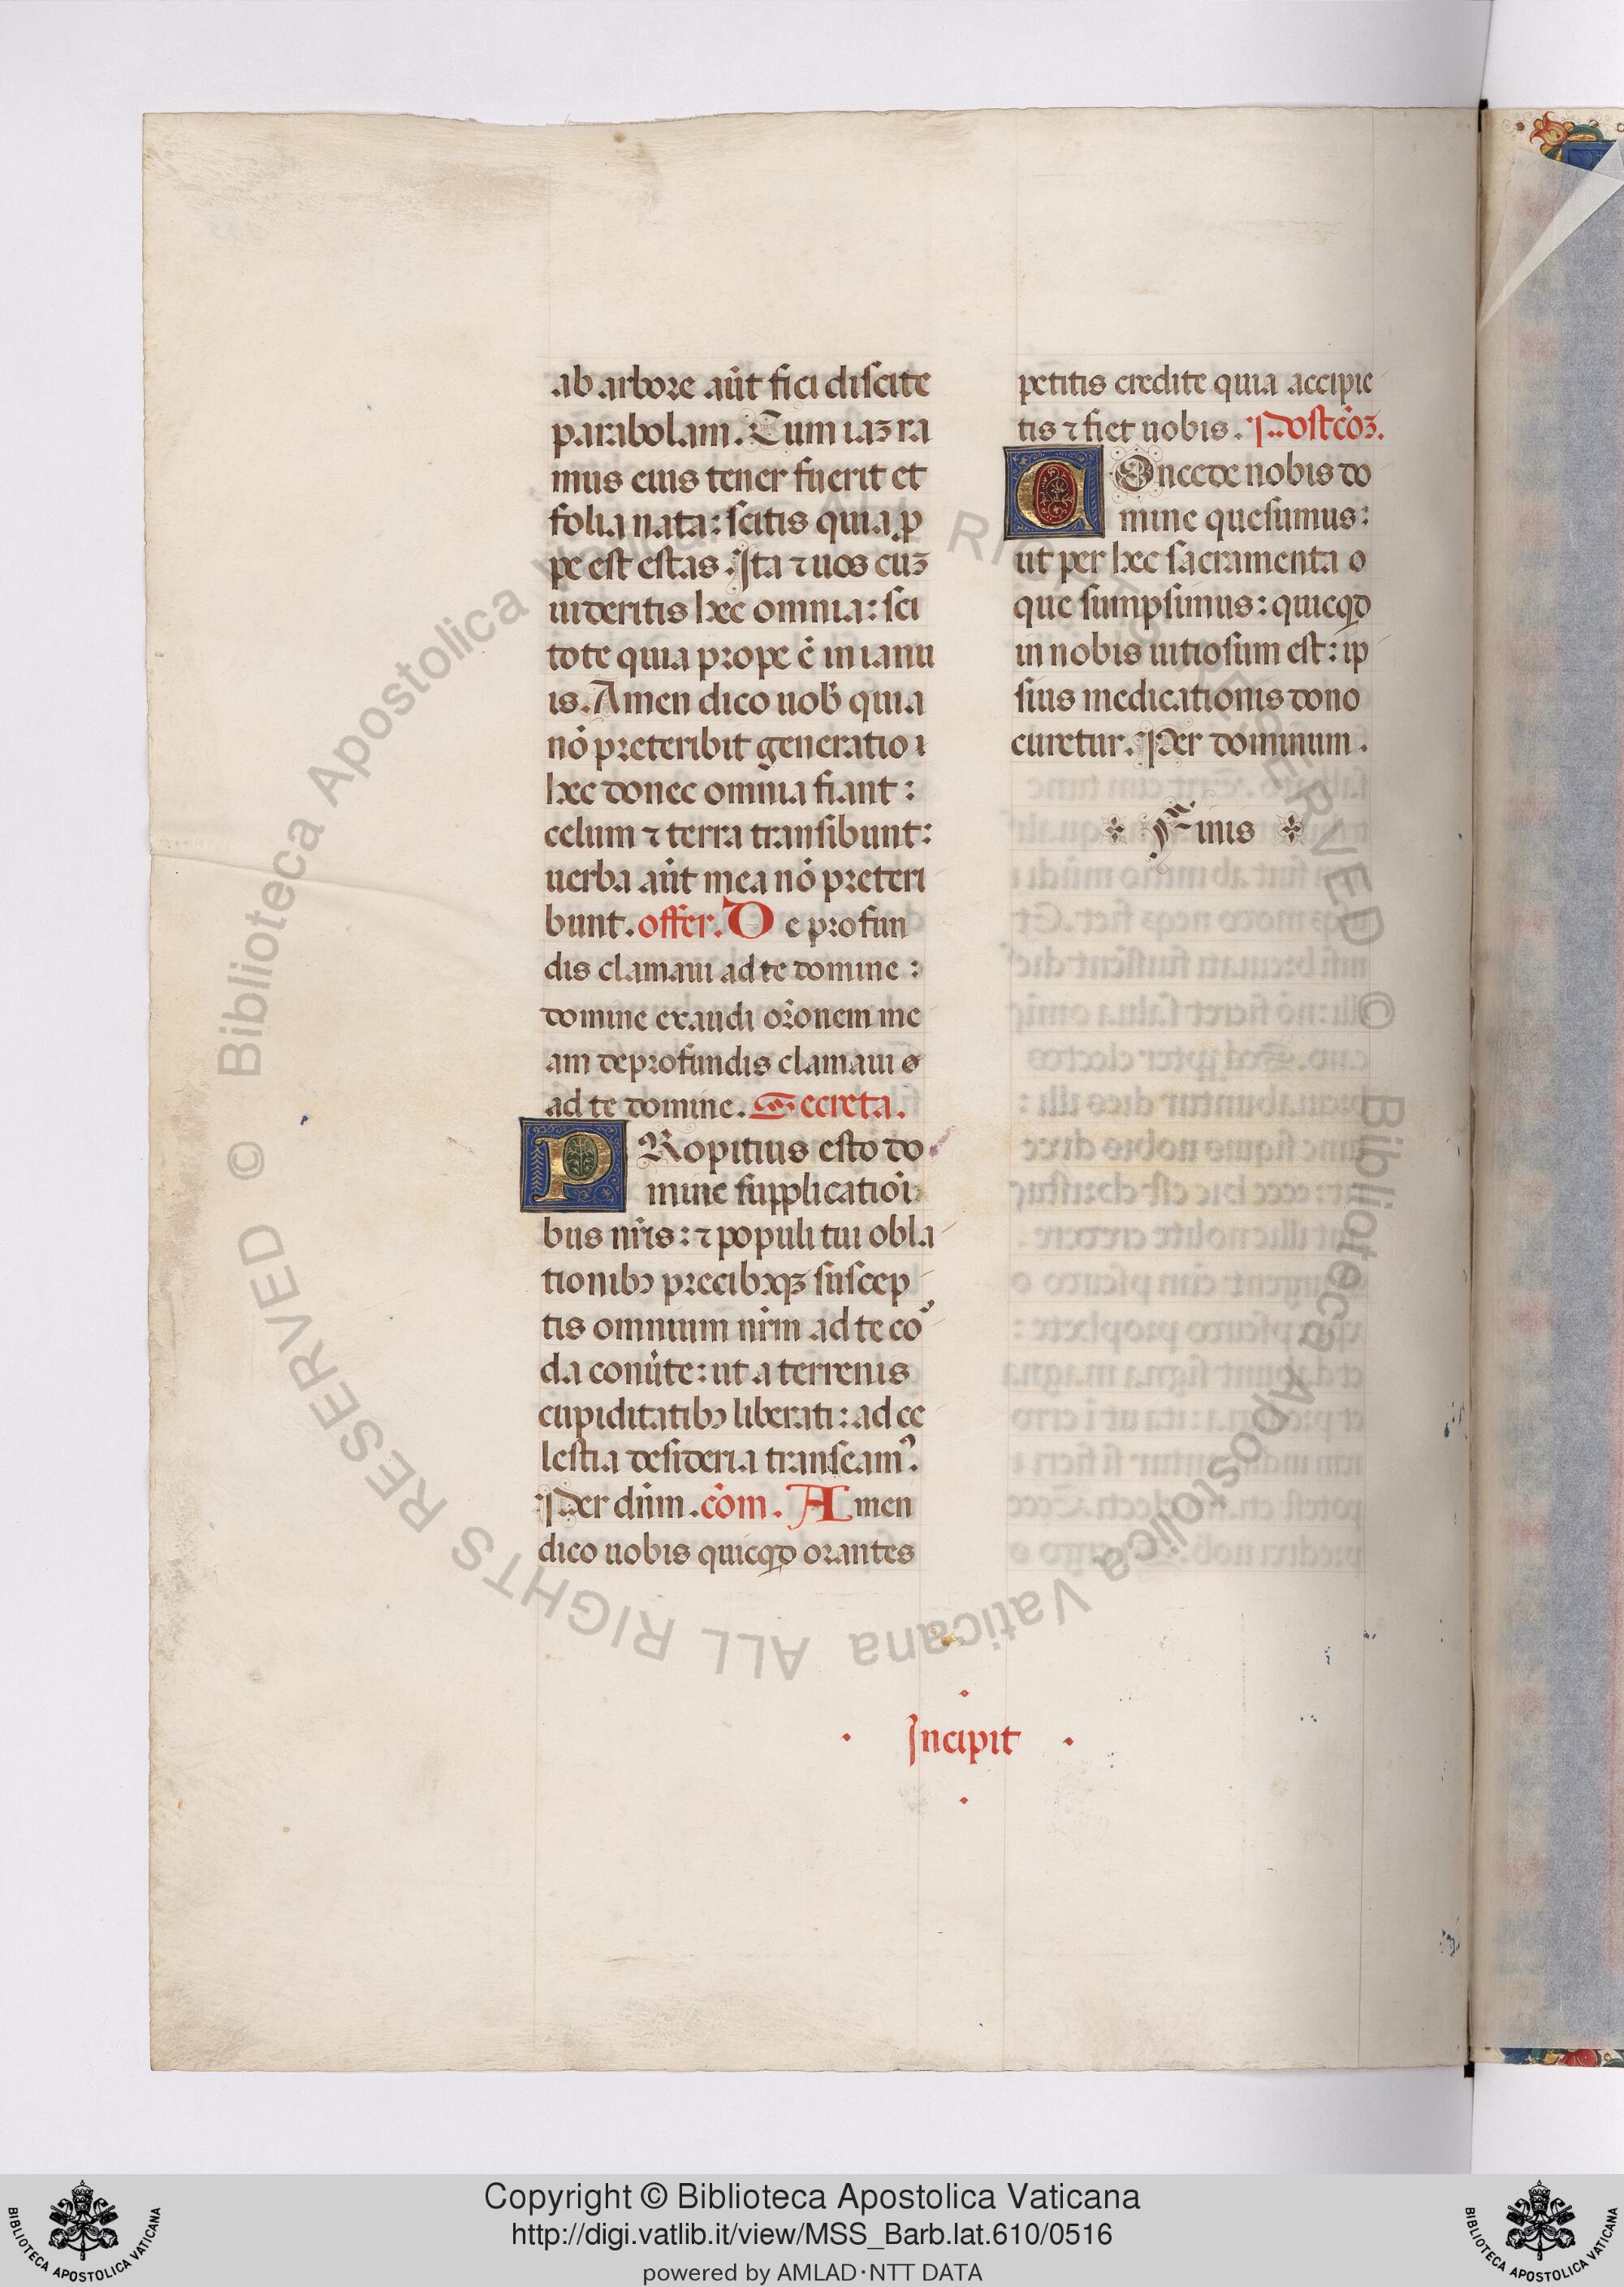 ab arbore aūt fici discite
parabolam. Cum iaȝ ra
mus eius tener fuerit et
folia nata: scitis quia ꝓ
pe est estas. Ita ⁊ uos cuȝ
uideritis hec omnia: sci
tote quia prope ē in ianu
is. Amen dico uob̄ quia
nō preteribit generatio i
hec donec omnia fiant:
celum ⁊ terra transibunt:
uerba aūt mea nō preteri
bunt. offer. De profun
dis clamaui ad te domine:
domine exaudi or̄onem me
am deprofundis clamaui
ad te domine. Secreta.
PRopitius esto do
mine supplicatiōi
bus nr̄is: ⁊ populi tui obla
tionibꝫ precibꝫqꝫ suscep
tis omnium nr̄m ad te co
da conūte: ut a terrenis
cupiditatibꝫ liberati: ad ce
lestia desideria transeamꝰ.
Per dūm. cōm. Amen
dico nobis quicqd̄ orantes
petitis credite quia accipie
tis ⁊ fiet uobis. Postcōȝ.
COncede nobis do
mine quesumus:
ut per hec sacramenta
que sumpsimus: quicqd̄
in nobis uitiosum est: ip
sius medicationis dono
curetur. Per dominum.
Finis
Incipit
Copyright © Biblioteca Apostolica Vaticana
http://digi.vatlib.it/view/MSS_Barb.lat.610/0516
powered by AMLAD·NTT DATA
BIBLIOTECA APOSTOLICA VATICANA
BIBLIOTECA APOSTOLICA VATICANA
© Biblioteca Apostolica Vaticana ALL RIGHTS RESERVED
© Biblioteca Apostolica Vaticana ALL RIGHTS RESERVED